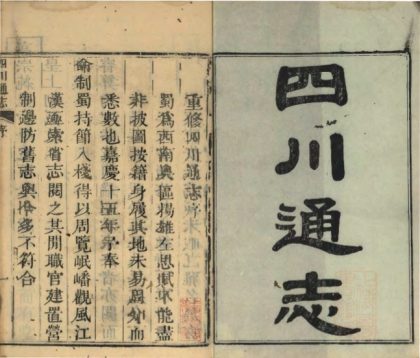 四川通志
重修四川通志序
蜀為西南奧區揚雄左思賦不能盡
非披圖按籍身履其地未易周知而
悉數也嘉慶十五年余奉
命制蜀持節入棧得以周覽岷嶓觀風江
漢索省志閱之其間職官建置營
制邊防舊志與今多不符合
四川通志 序